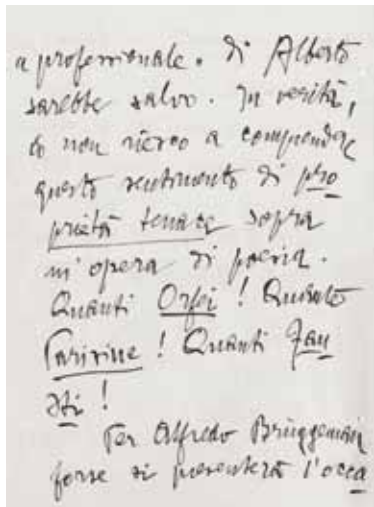 a professionale. di Alberto
sarebbe salvo. In verità,
io non riesco a comprendere
questo sentimento di pro
prietà tenace sopra
un' opera di poesia.
Quanti Orfei! Quante
Parisine! Quanti Fau
sti!
Per Alfredo Brüggemann
forse si presenterà l'occa